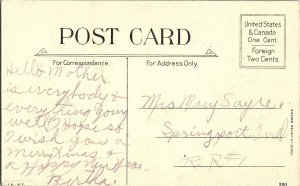 POST CARD
United States
& Canada
One Cent.
Foreign
Two Cents.
For Correspondence.
For Address Only.
Hello Mother
is everybody &
everything going
well? Hope so
I wish you a
merry Xmas &
a Happy New Year.
Bertha.
Mrs. Mary Sayre,
Springport Ind.
R.R. #1